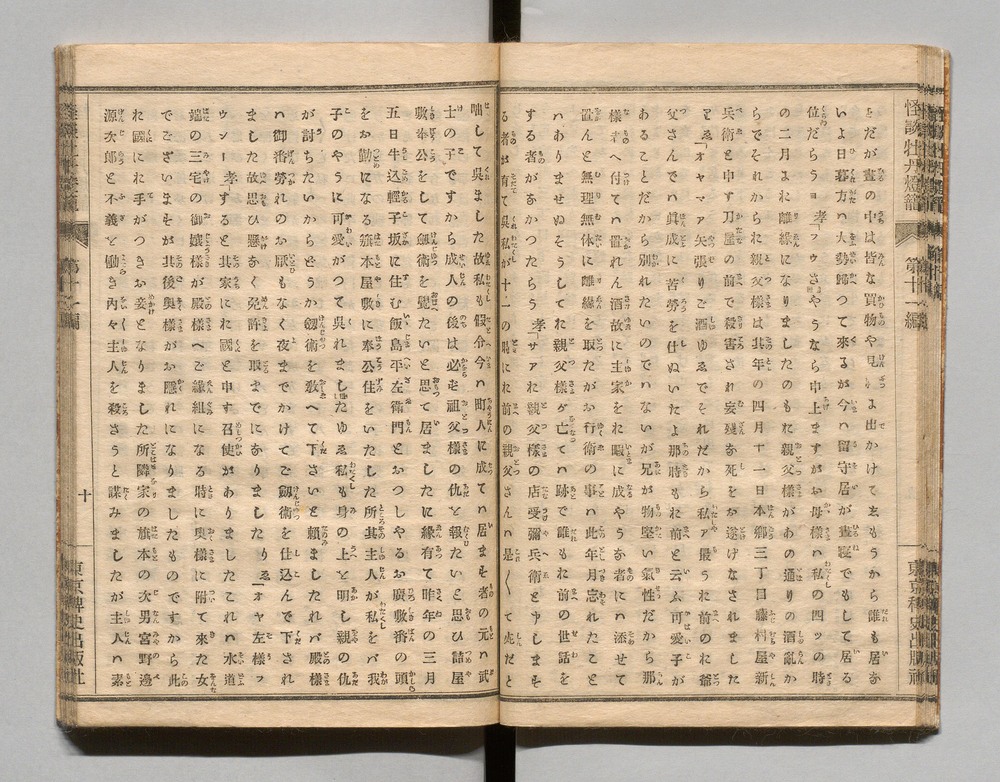 怪談牡丹燈籠
第十一編
東京稗史出版社
とだが晝の中は皆な買物や見物よ出かけて去もうから誰も居な
いよ日暮方ハ大勢歸つて來るが今ハ留守居が晝寢でもして居る
位だらうョ 孝「フウさやうなら中上ますがお母様ハ私の四ッの時
の二月よれ離緣になりましたのもれ親父様があの通りの酒亂か
らでそれかられ親父様は其年の四月十一日本郷三丁目藤村屋新
兵衛と申す刀屋の前で殺害され妄殘な死をお遂げなされました
とゑ「オヤマア矢張りご酒ゆゑでそれだから私ァ最うれ前のれ爺
父さんでハ眞成に苦勞を仕ぬいたよ那時もれ前と云ふ可愛子が
あることだから別れたいのでハないが兄が物堅い氣性だから那
様者へ付てハ置れん酒故に主家をれ暇に成やうな者にハ添せて
置んと無理無体に離緣を取たがお行衛の事ハ此年月忘れたこと
ハありませぬそうしてれ親父様が亡てハ跡で誰もれ前の世話を
する者がなかつたらう 孝「サアれ親父様の店受彌兵衛と申しまそ
る者が有て呉私が十一の時にれ前の親父さんハ是〱て死だと
咄して呉ました故私も假令今ハ町人に成てハ居まそ者の元ハ武
士の子ですから成人の後は必む祖父様の仇と報たいと思ひ詰屋
敷奉公をして劔術を覺たいと思て居ましたに縁有て昨年の三月
五日牛込輕子坂に住む飯島平左衛門とおつしやるお廣敷番の頭
をお勤になる籏本屋敷に奉公住をいたした所其主人が私をバ我
子のやうに可愛がつて呉れましたゆゑ私も身の上と明し親の仇
が討ちたいからとうか劔術を敎へて下さいと賴ましたれバ殿様
ハ御番勞れのお厭もなく夜までかけてご劔術を仕込んで下され
ました故思ひ懸なく免許を取までになりました り ゑ「オヤ左様フ
ウンー 孝「すると其家にれ國と申す召使がありましたこれハ水道
端の三宅の御孃様が殿様へご縁組になる時に奥様に附て來た女
でございまそが其後奥様がお隱れになりましたものですから此
れ國にれ手がつきお妾となりました所隣家の旗本の次男宮野邊
源次郎と不義と働らき內々主人を殺さうと謀みましたが主人ハ素
十
東京稗史出版社